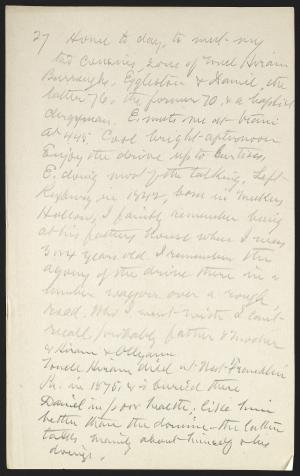 27 Home to day, to meet my
two cousins, sons of Uncle Hiram
Burroughs, Eggleston & Daniel, the
latter 76, the former 70, & a baptist
clergyman. E. meets me at
At 4.45 Cool bright afternoon
Enjoy the drive up to Curtises,
E. doing most of the talking. Left
Roxbury in 1842, born in Meekers
Hollow, I faintly remember being
at his fathers house when I was
3 or 4 years old. I remember the
agony of the drive there in a
lumber waggon over a rough
road. Who I went with I can't
recall, probably father & mother
& Hiram & Olly Ann
Uncle Hiram died at West Franklin
Pa. in 1876, & is buried there
Daniel in poor health, like him
better than the dominie – the latter
talks mainly about himself & his
doings.